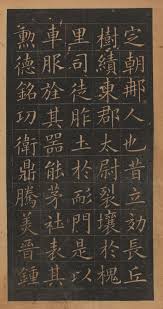 定朝那人也昔立効長丘
樹績東郡太尉裂壤於槐
里司徒胙土於耏門是以
車服旌其器能茅社表其
勲德銘功衛鼎騰美晉鍾